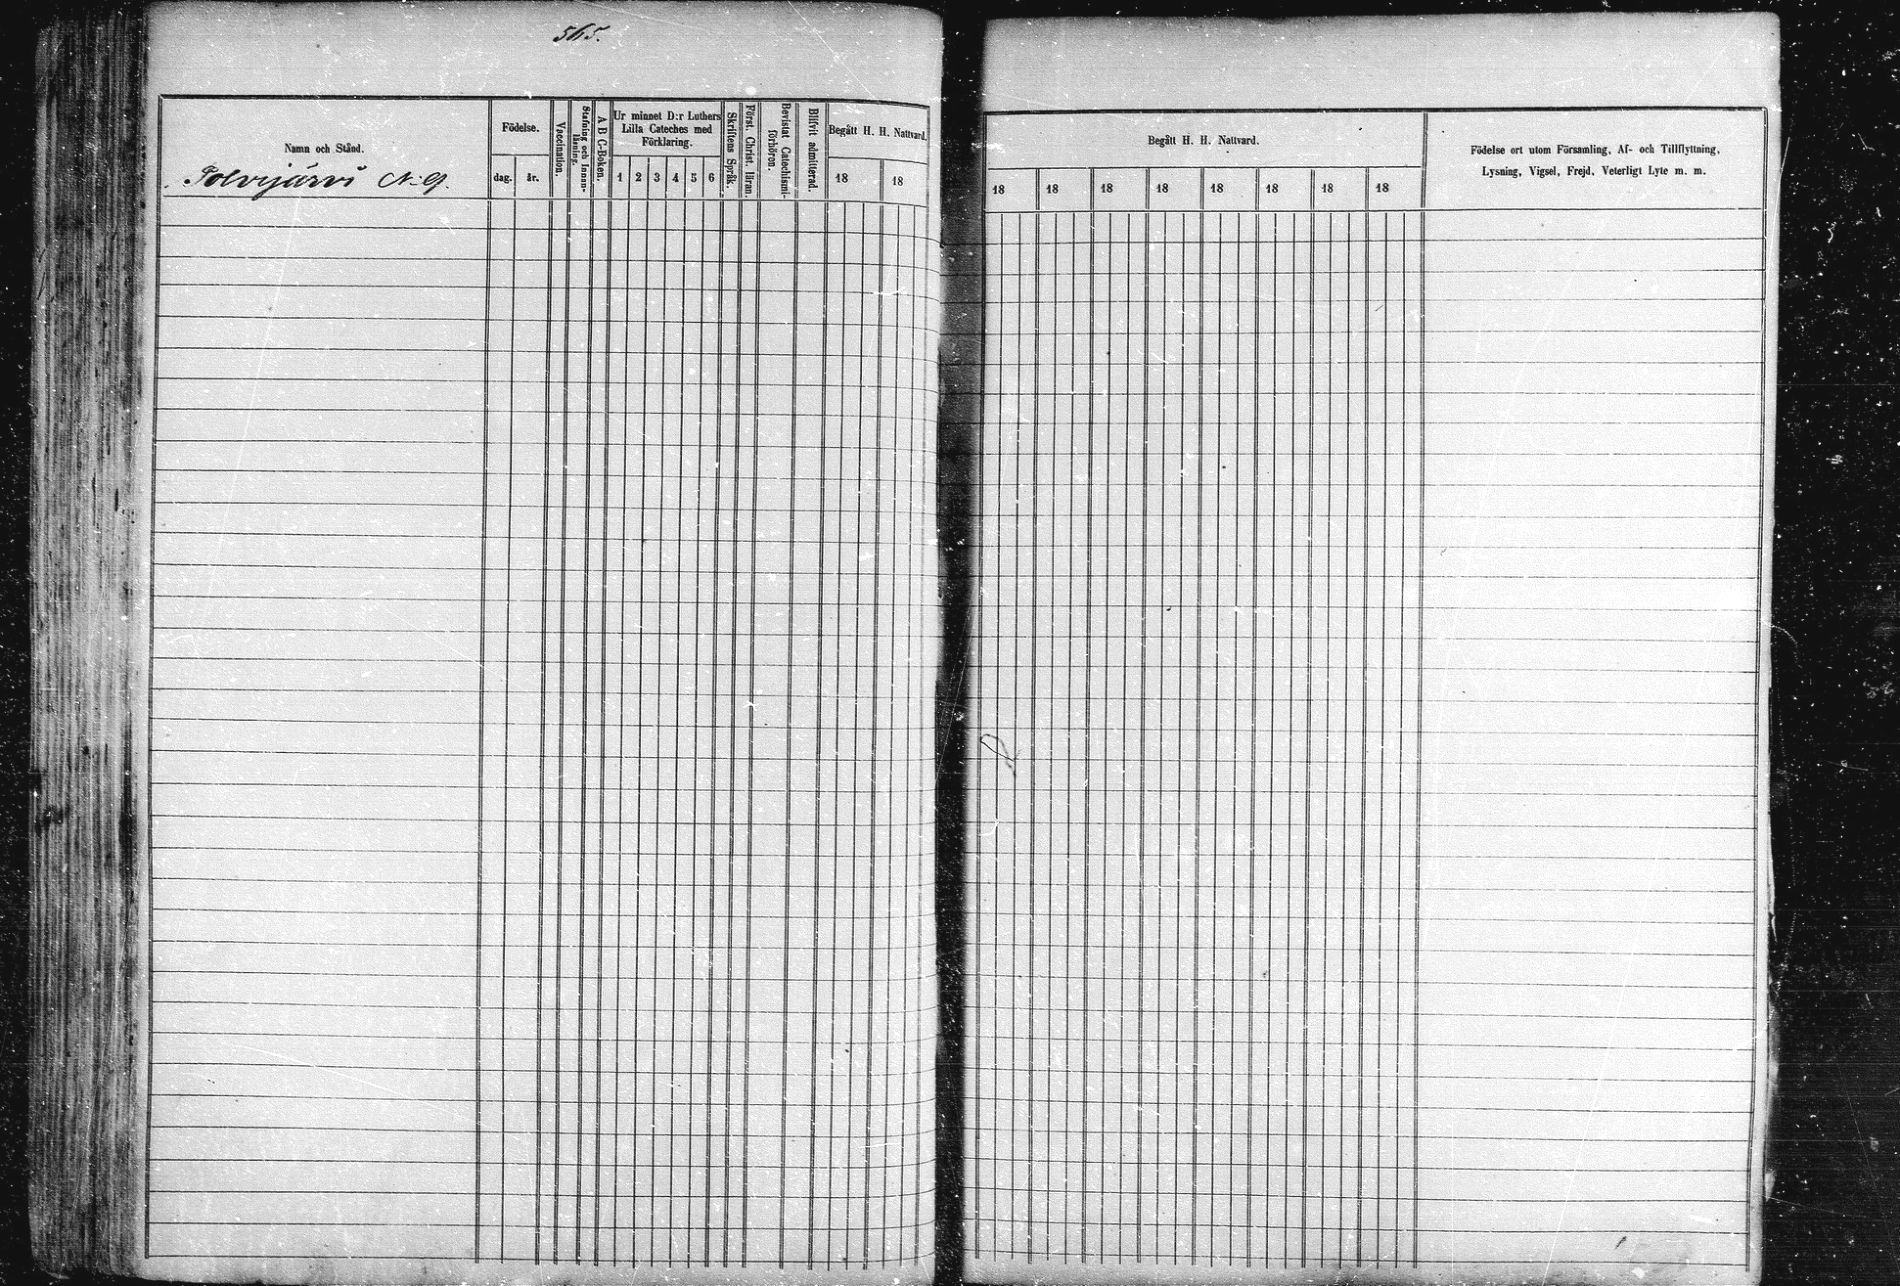 565.
Namn och Stånd.
Polvijärvi N:o 9.
Födelse.
dag. år.
Vaccination.
Stafning och Innan-
läsning.
A B C-Boken.
Ur minnet D:r Luthers
Lilla Cateches med
Förklaring.
1 2 3 4 5 6
Skriftens Språk.
Först. Christ. läran.
Bevistat Catechismi-
förhören.
Blifvit admitterad.
Begått H. H. Nattvard.
18 18
Begått H. H. Nattvard.
18 18 18 18 18 18 18 18
Födelse ort utom Församling, Af- och Tillflyttning,
Lysning, Vigsel, Frejd, Veterligt Lyte m. m.